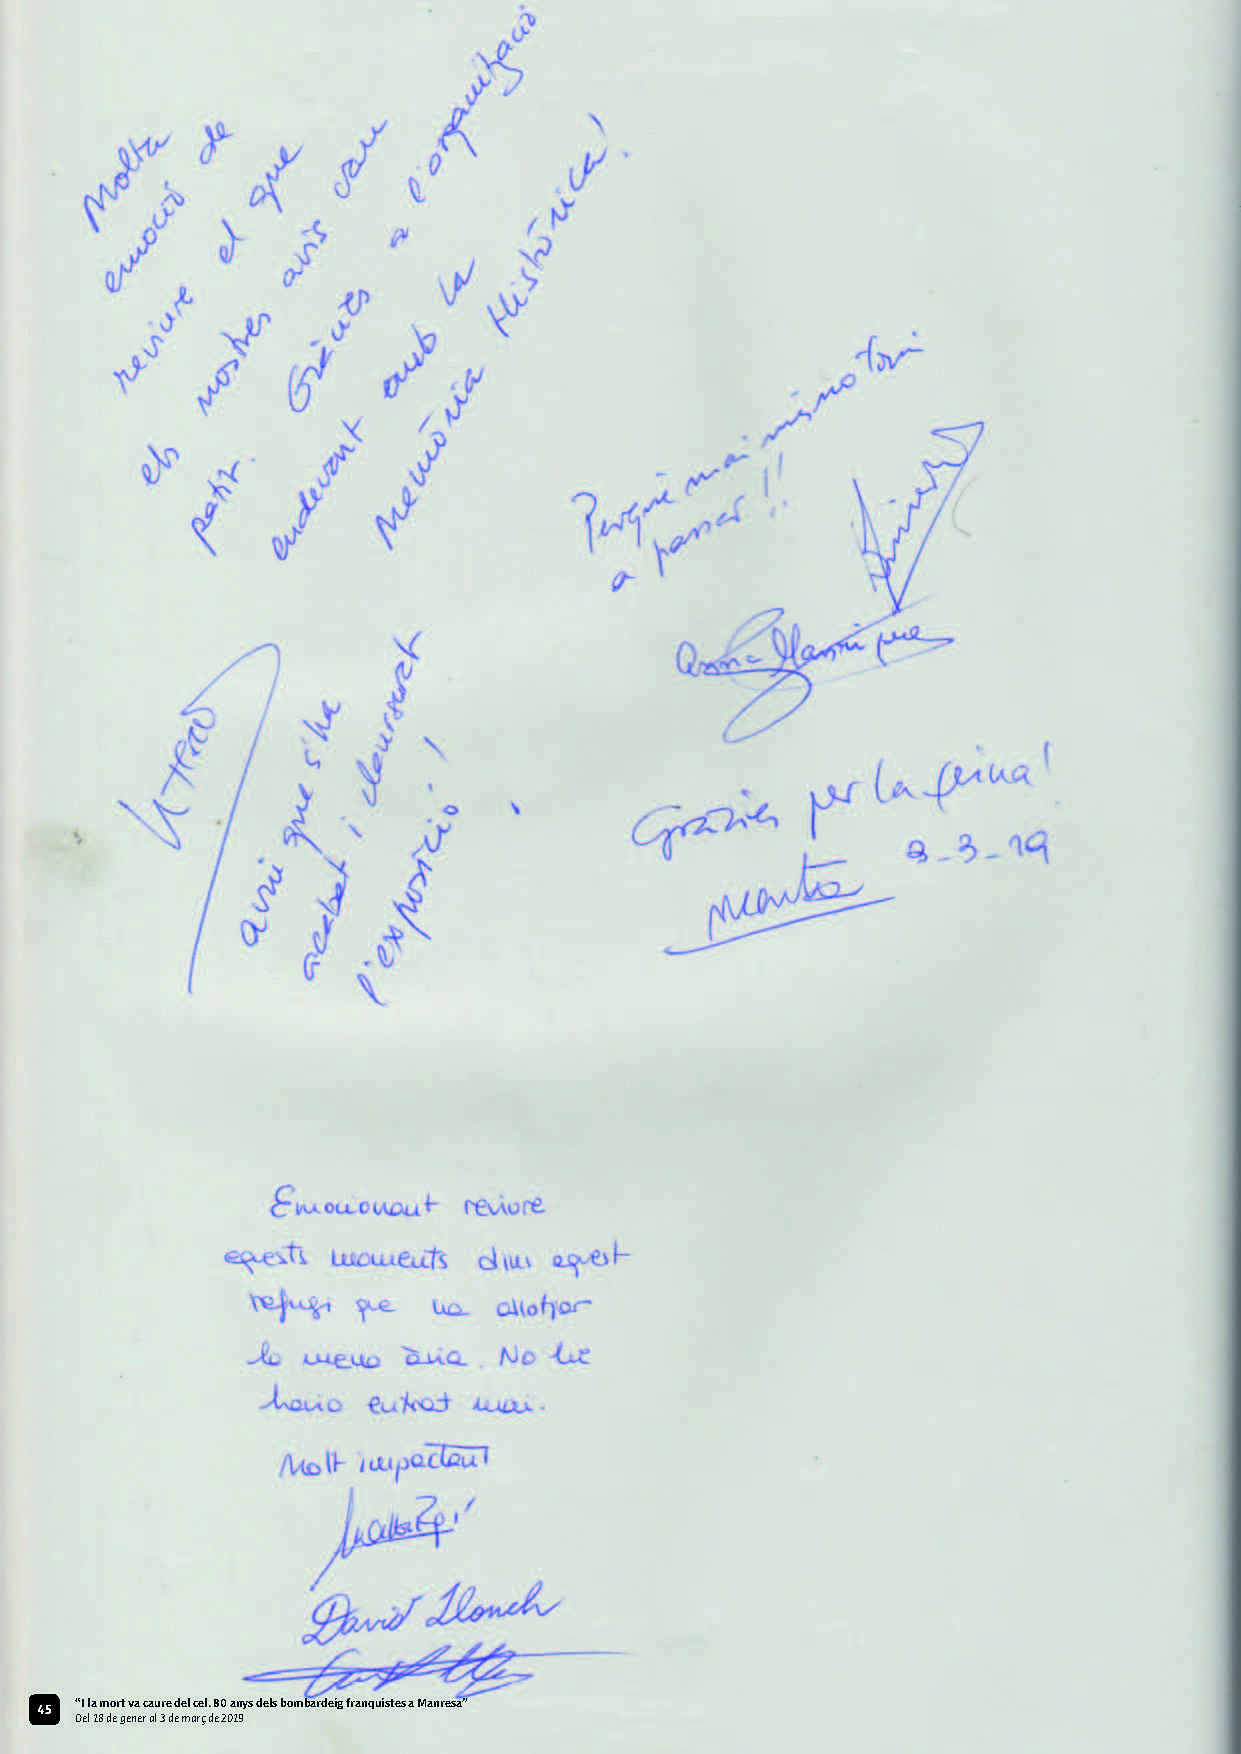 Molta
emoció de
reviure el que
els nostres avis van
patir. Gràcies a l'organització
endevant amb la
Memòria Històrica!
Perquè mai més no torni
a passar!!
Anna Manrique
avui que s'ha
acabat i clausurat
l'exposició!
Gràcies per la feina!
3-3-19
Marta
Emocionant reviure
aquests moments dins aquest
refugi que va allotjar
la meva àvia. No hi
havia entrat mai.
Molt impactant
David Llonch
45
“I la mort va caure del cel. 80 anys dels bombardeig franquistes a Manresa”
Del 18 de gener al 3 de març de 2019